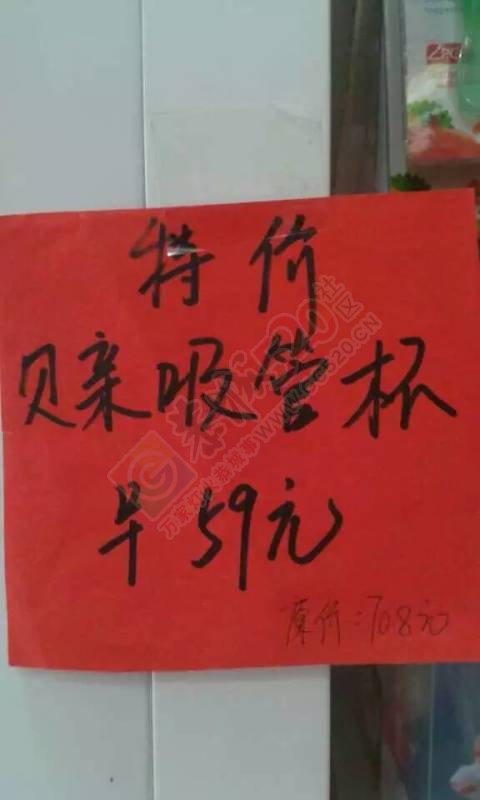 特价
贝亲吸管杯
59元
原价：70.8元
2PC